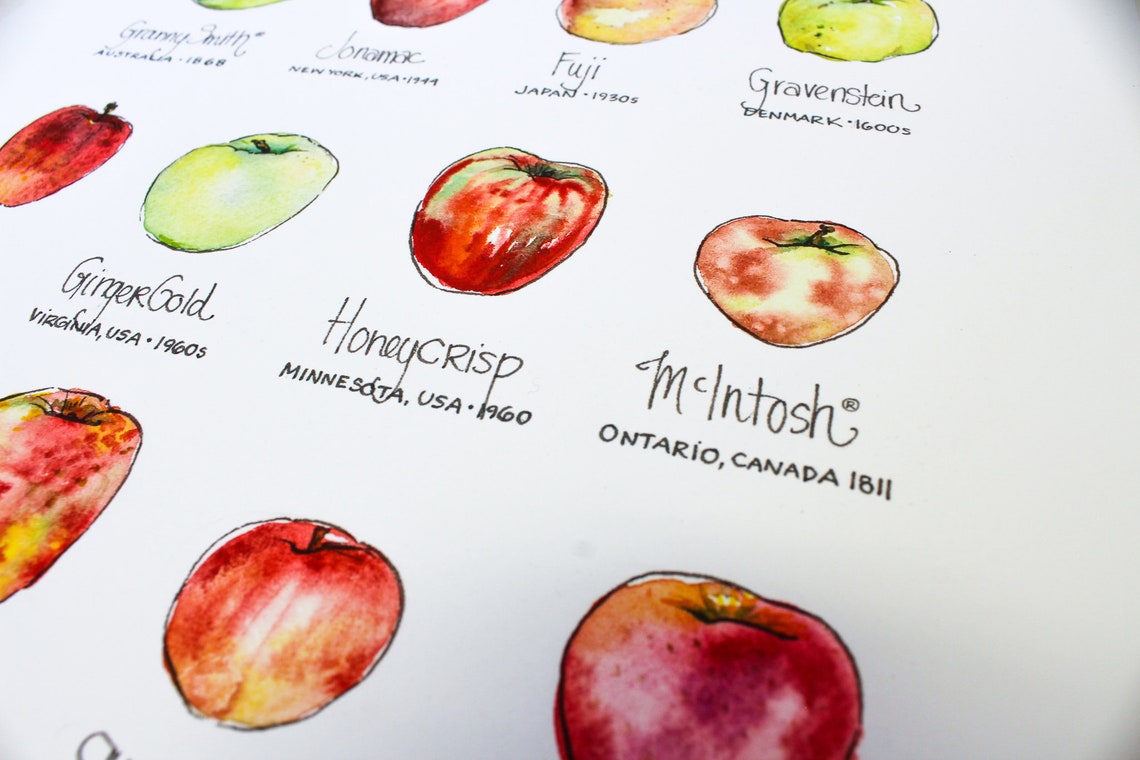 Granny Smith®
AUSTRALIA • 1868
Jonamac
NEW YORK, USA • 1944
Fuji
JAPAN • 1930s
Gravenstein
DENMARK • 1600s
GingerGold
VIRGINIA, USA • 1960s
Honeycrisp
MINNESOTA, USA • 1960
McIntosh®
ONTARIO, CANADA 1811